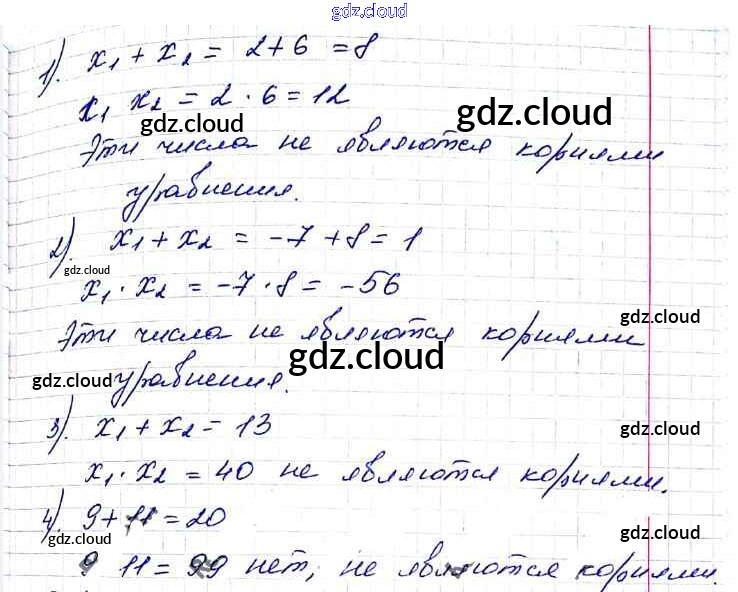 gdz.cloud
1). x₁ + x₂ = 2+6 = 8
x₁ x₂ = 2 · 6 = 12
gdz.cloud gdz.cloud
Эти числа не являются корнями
уравнения.
2). x₁ + x₂ = -7 + 8 = 1
gdz.cloud
x₁ · x₂ = -7 · 8 = -56
gdz.cloud
Эти числа не являются корнями
gdz.cloud
gdz.cloud уравнения.
3). x₁ + x₂ = 13
gdz.cloud
x₁ · x₂ = 40 не являются корнями.
4). 9 + 11 = 20
gdz.cloud gdz.cloud
9 11 = 99 нет, не являются корнями.